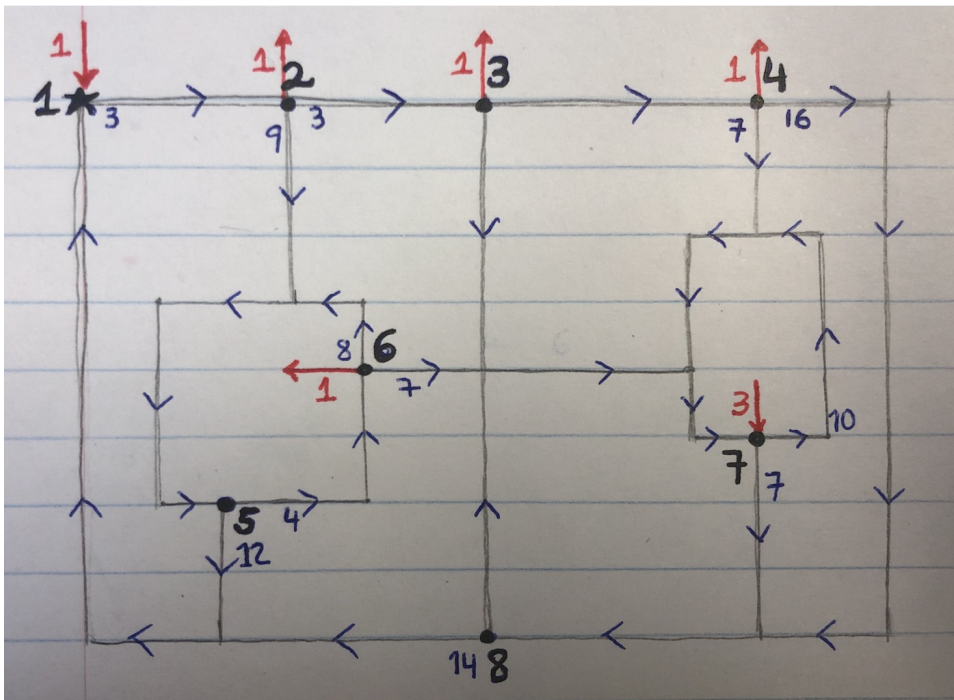 1 1 2 1 3 1 4
1 3 9 3 7 16
8 6
1 7
3 10
7 7
5 4
12
14 8